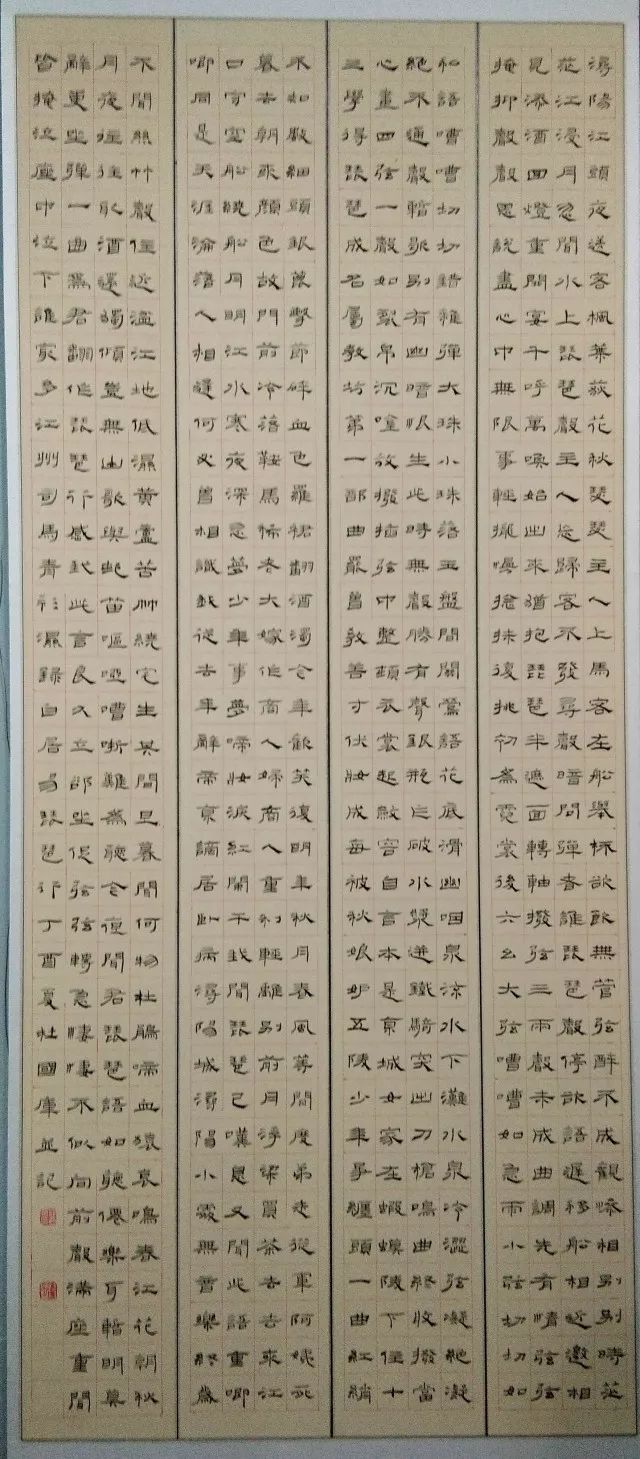 潯陽江頭夜送客楓葉荻花秋瑟瑟主人下馬客在船舉杯欲飲無管弦醉不成歡慘相別別時茫
茫江浸月忽聞水上琵琶聲主人忘歸客不發尋聲暗問彈者誰琵琶聲停欲語遲移船相近邀相
見添酒回燈重開宴千呼萬喚始出來猶抱琵琶半遮面轉軸撥弦三兩聲未成曲調先有情弦弦
掩抑聲聲思說盡心中無限事輕攏慢撚抹復挑初為霓裳後六幺大弦嘈嘈如急雨小弦切切如
私語嘈嘈切切錯雜彈大珠小珠落玉盤間關鶯語花底滑幽咽泉流水下灘水泉冷澀弦凝絕凝
絕不通聲暫歇別有幽暗恨生此時無聲勝有聲銀瓶乍破水漿迸鐵騎突出刀槍鳴曲終收撥當
心畫四弦一聲如裂帛沉吟放撥插弦中整頓衣裳起斂容自言本是京城女家在蝦蟆陵下住十
三學得琵琶成名屬教坊第一部曲罷曾教善才伏妝成每被秋娘妒五陵少年爭纏頭一曲紅綃
不知數鈿頭銀篦擊節碎血色羅裙翻酒污今年歡笑復明年秋月春風等閒度弟走從軍阿姨死
暮去朝來顏色故門前冷落鞍馬稀老大嫁作商人婦商人重利輕離別前月浮梁買茶去去來江
口守空船繞船月明江水寒夜深忽夢少年事夢啼妝淚紅闌干我聞琵琶已嘆息又聞此語重唧
唧同是天涯淪落人相逢何必曾相識我從去年辭帝京謫居臥病潯陽城潯陽小處無音樂終歲
不聞絲竹聲住近湓江地低濕黃蘆苦竹繞宅生其間旦暮聞何物杜鵑啼血猿哀鳴春江花朝秋
月夜往往取酒還獨傾豈無山歌與村笛嘔啞嘲哳難為聽今夜聞君琵琶語如聽仙樂耳暫明莫
辭更坐彈一曲為君翻作琵琶行感我此言良久立卻坐促弦弦轉急淒淒不似向前聲滿座重聞
皆掩泣座中泣下誰最多江州司馬青衫濕錄白居易琵琶行丁酉夏杜國庫並記